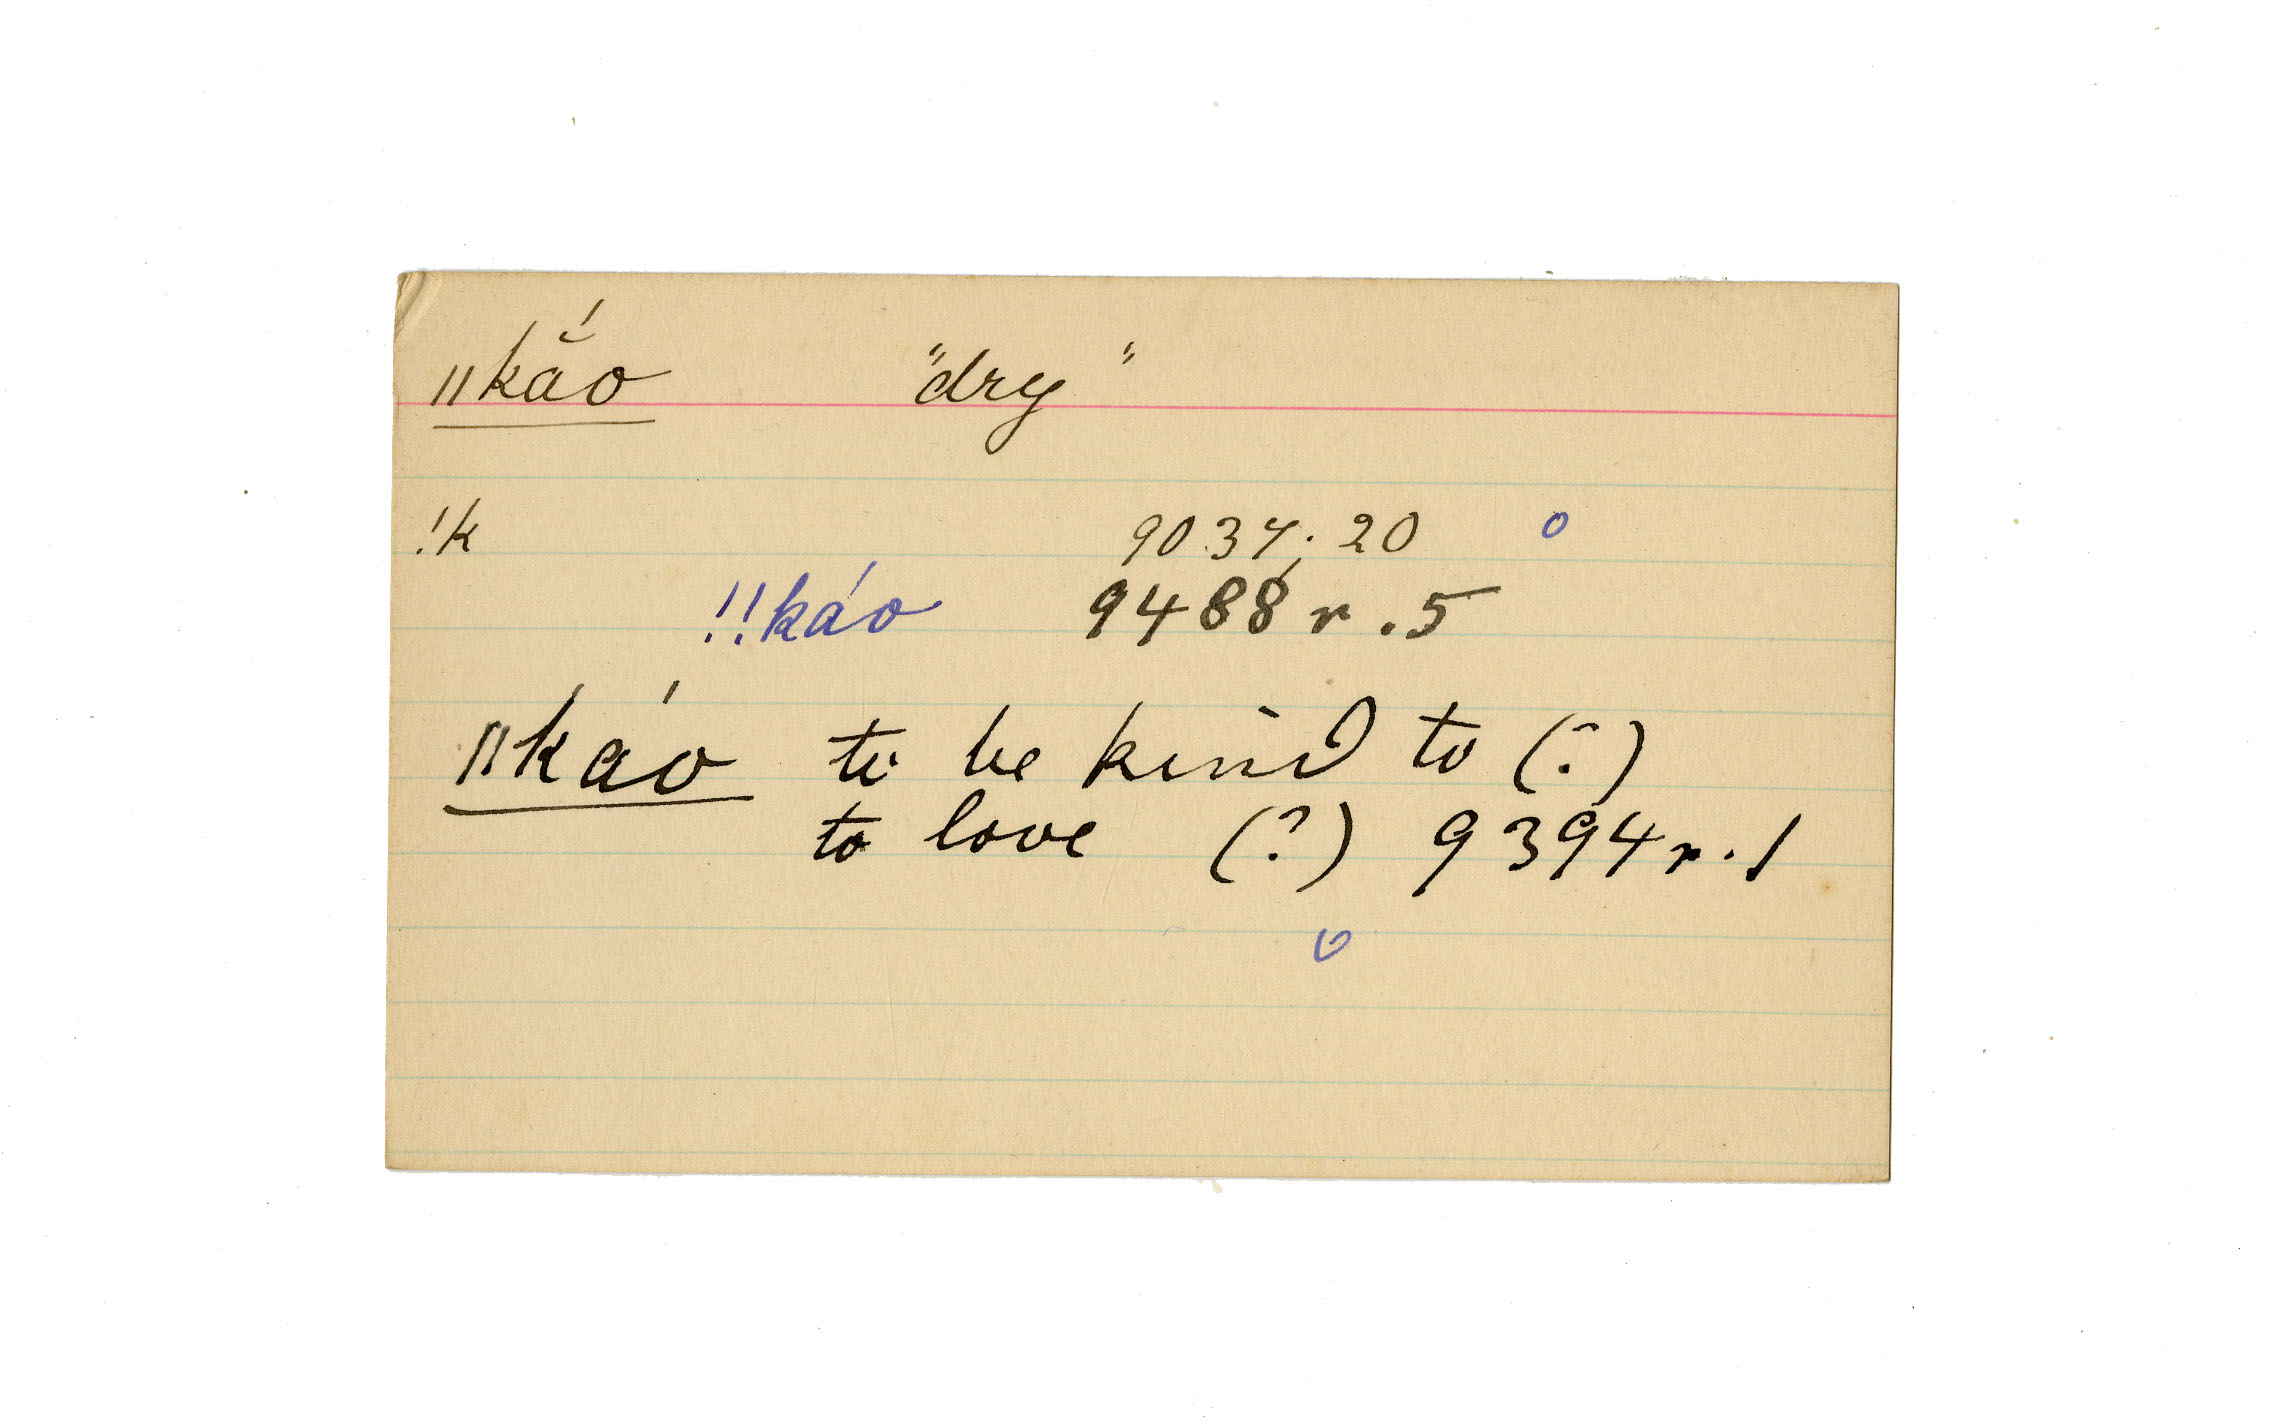 ǁkắo "dry"
!k 9034; 20 o
!!káo 9488 r. 5
ǁkáo to be kind to (?)
to love (?) 9394 r. 1